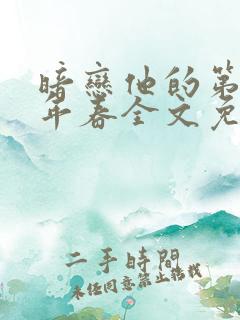 暗戀他的第
年春全文免
二手時間
未經同意禁止轉載